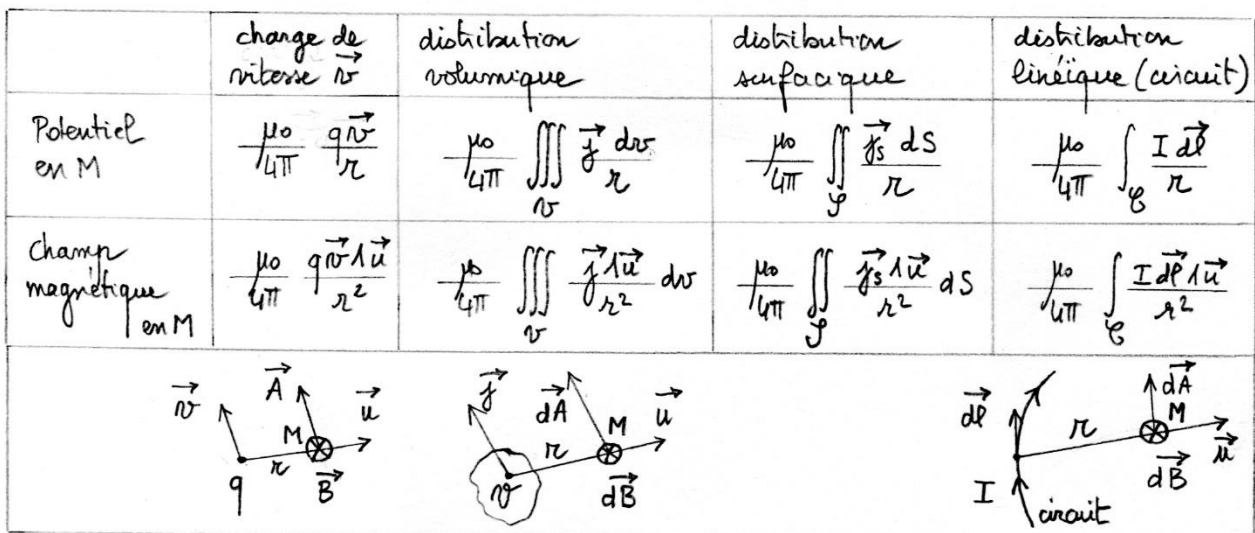 charge de
vitesse v⃗
distribution
volumique
distribution
surfacique
distribution
linéïque (circuit)
Potentiel
en M
μ₀/4π qv⃗/r
μ₀/4π ∭_v j⃗ dv/r
μ₀/4π ∬_S j⃗_S dS/r
μ₀/4π ∫_C I dl⃗/r
Champ
magnétique
en M
μ₀/4π qv⃗∧u⃗/r²
μ₀/4π ∭_v j⃗∧u⃗/r² dv
μ₀/4π ∬_S j⃗_S∧u⃗/r² dS
μ₀/4π ∫_C I dl⃗∧u⃗/r²
v⃗ A⃗ u⃗
M
r
q B⃗
j⃗ dA⃗ u⃗
M
r
v dB⃗
dl⃗ dA⃗
r M
u⃗
I dB⃗
circuit